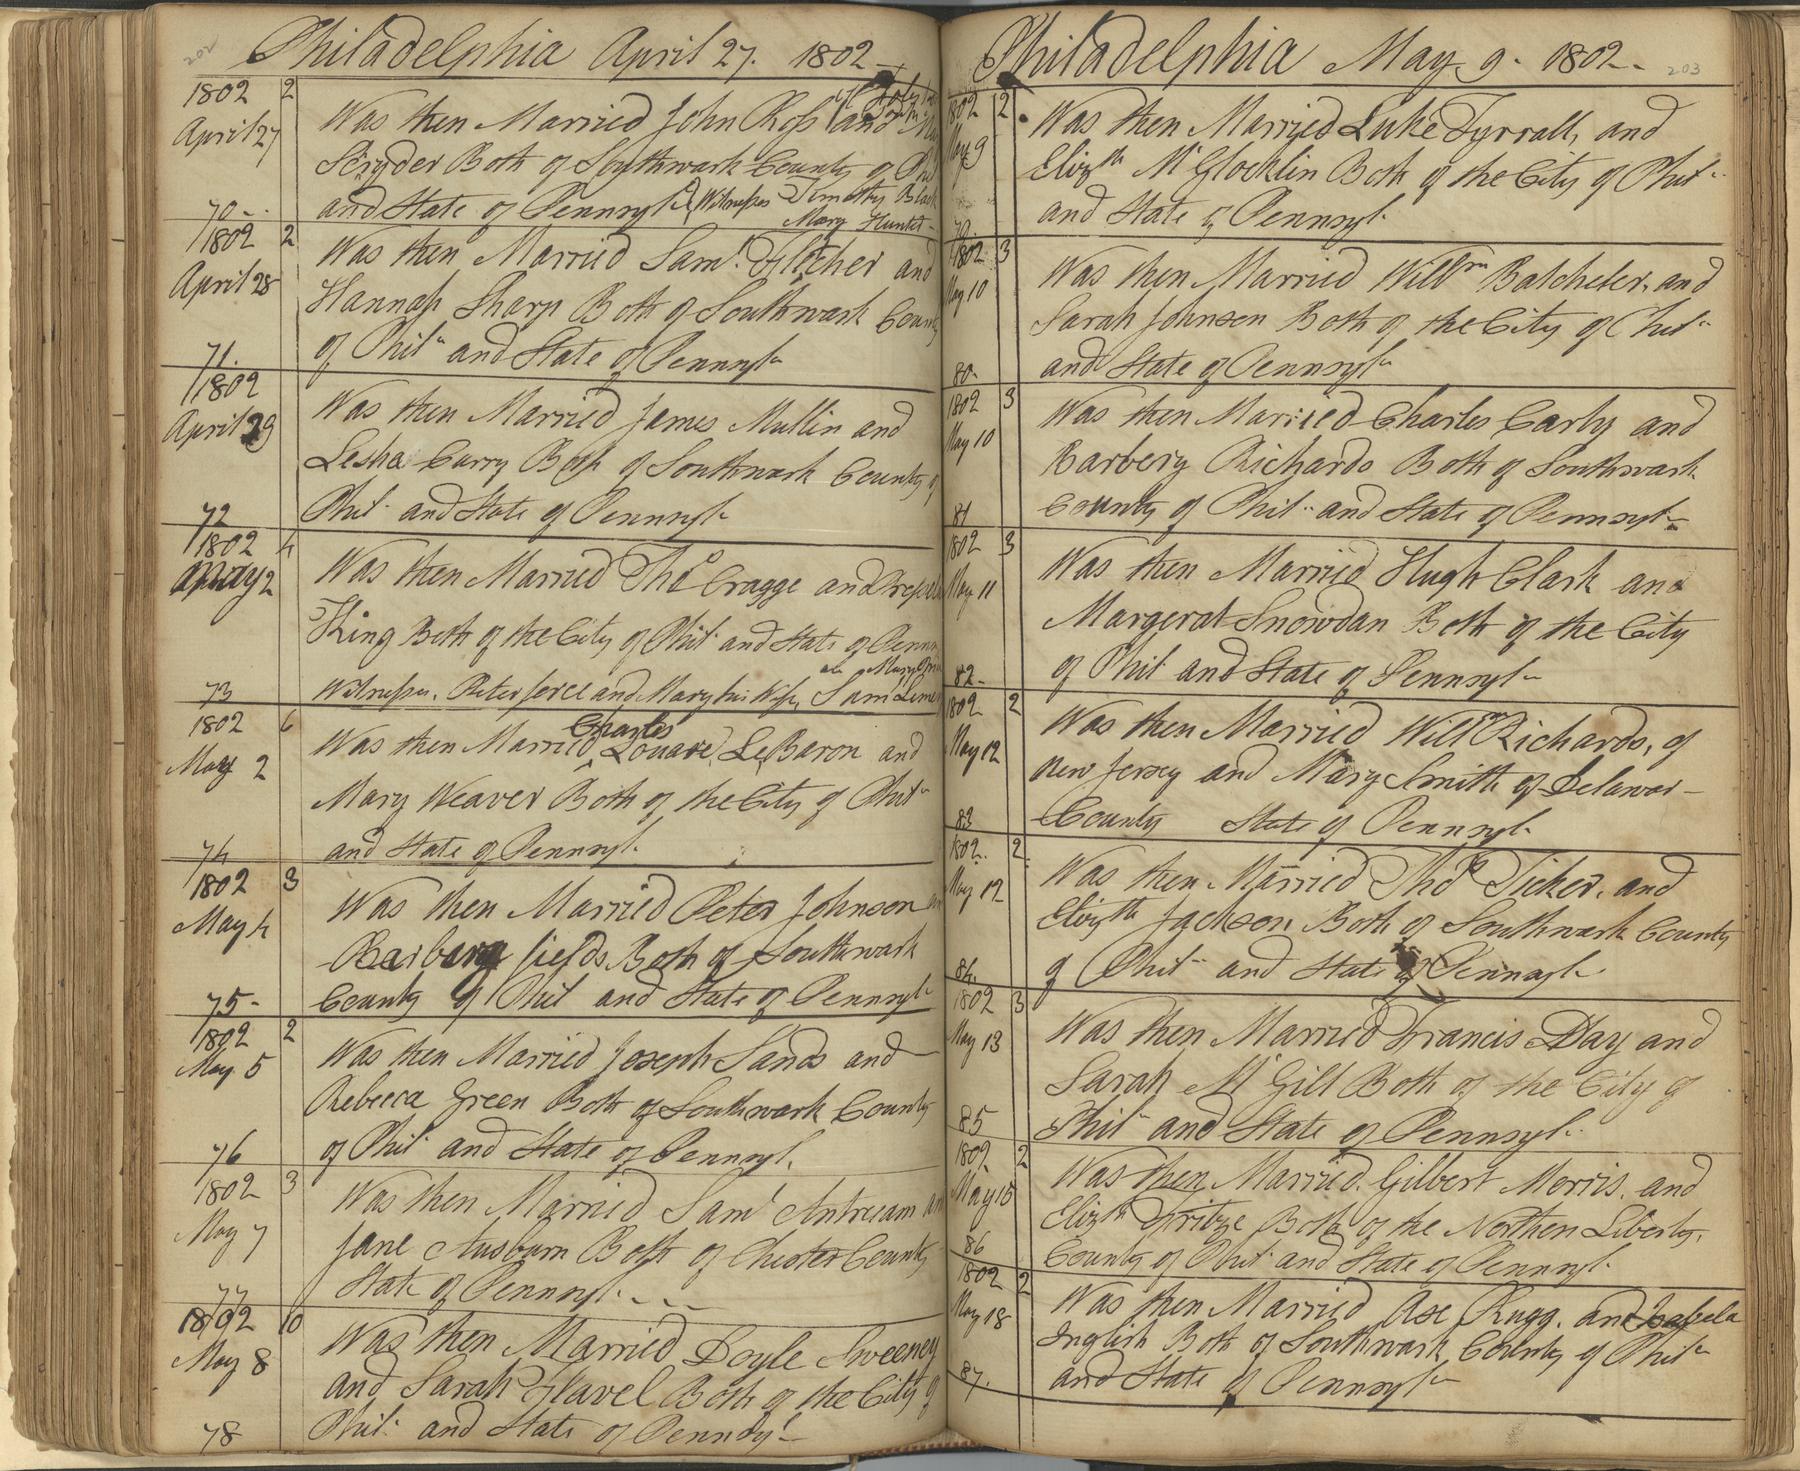 202
Philadelphia April 27. 1802
1802 2
April 27
Was then Married John Ross and
Snyder Both of Southwark County of
and State of Pennsyla Witnesses Timothy Black
Mary Hunter
70
1802 2
April 28
Was then Married Saml. Fletcher and
Hannah Sharp Both of Southwark County
of Phila and State of Pennsyla
71.
1802
April 29
Was then Married James Mullin and
Lesha Curry Both of Southwark County of
Phil. and State of Pennsyla
72
1802 4
May 2
Was then Married Tho Cragge and
King Both of the City of Phil. and State of Penn
Mary
Witnesses. Peter force and Mary his Wife, Sam
73
1802 6
May 2
Charles
Was then Married Louare, LeBaron and
Mary Weaver Both of the City of Phila
and State of Pennsyl.
74
1802 3
May 4
Was then Married Peter Johnson an
Barbara fields Both of Southwark
County of Phil and State of Pennsyl
75-
1802 2
May 5
Was then Married Joseph Sands and
Rebecca Green Both of Southwark County
of Phil. and State of Pennsyl.
76
1802 3
May 7
Was then Married Saml Antream an
Jane Ausburn Both of Chester County
State of Pennsyl.
77
1802 10
May 8
Was then Married Doyle Sweeney
and Sarah Flavel Both of the City of
Phil. and State of Pennsyl-
78
Philadelphia May 9. 1802. 203
1802 2
May 9
Was then Married Luke Tyrrall, and
Elizth Mc Glocklin Both of the City of Phil
and State of Pennsyl.
79.
1802 3
May 10
Was then Married Willm Batcheler, and
Sarah Johnson Both of the City of Phila
and State of Pennsyl
80-
1802 3
May 10
Was then Married Charles Carly and
Barbery Richards Both of Southwark
County of Phil. and State of Pennsyl.
81
1802 3
May 11
Was then Married Hugh Clark and
Margerat Snowdan Both of the City
of Phil and State of Pennsyl
82-
1802 2
May 12
Was then Married Willm Richards, of
New Jersey and Mary Smith of Delawar-
County State of Pennsyl.
83
1802. 2
May 12
Was then Married Tho Ticker. and
Elizth Jackson Both of Southwark County
of Phil and State of Pennsyl-
84.
1802 3
May 13
Was then Married Francis Day and
Sarah Mc Gill Both of the City of
Phil and State of Pennsyl.
85
1802 2
May 15
Was then Married. Gilbert Morris. and
Elizth Fritze Both of the Northen Liberty,
County of Phil and State of Pennsyl.
86
1802 2
May 18
Was then Married Ase Rugg. and Isabela
Inglish Both of Southwark County of Phila
and State of Pennsyl
87.